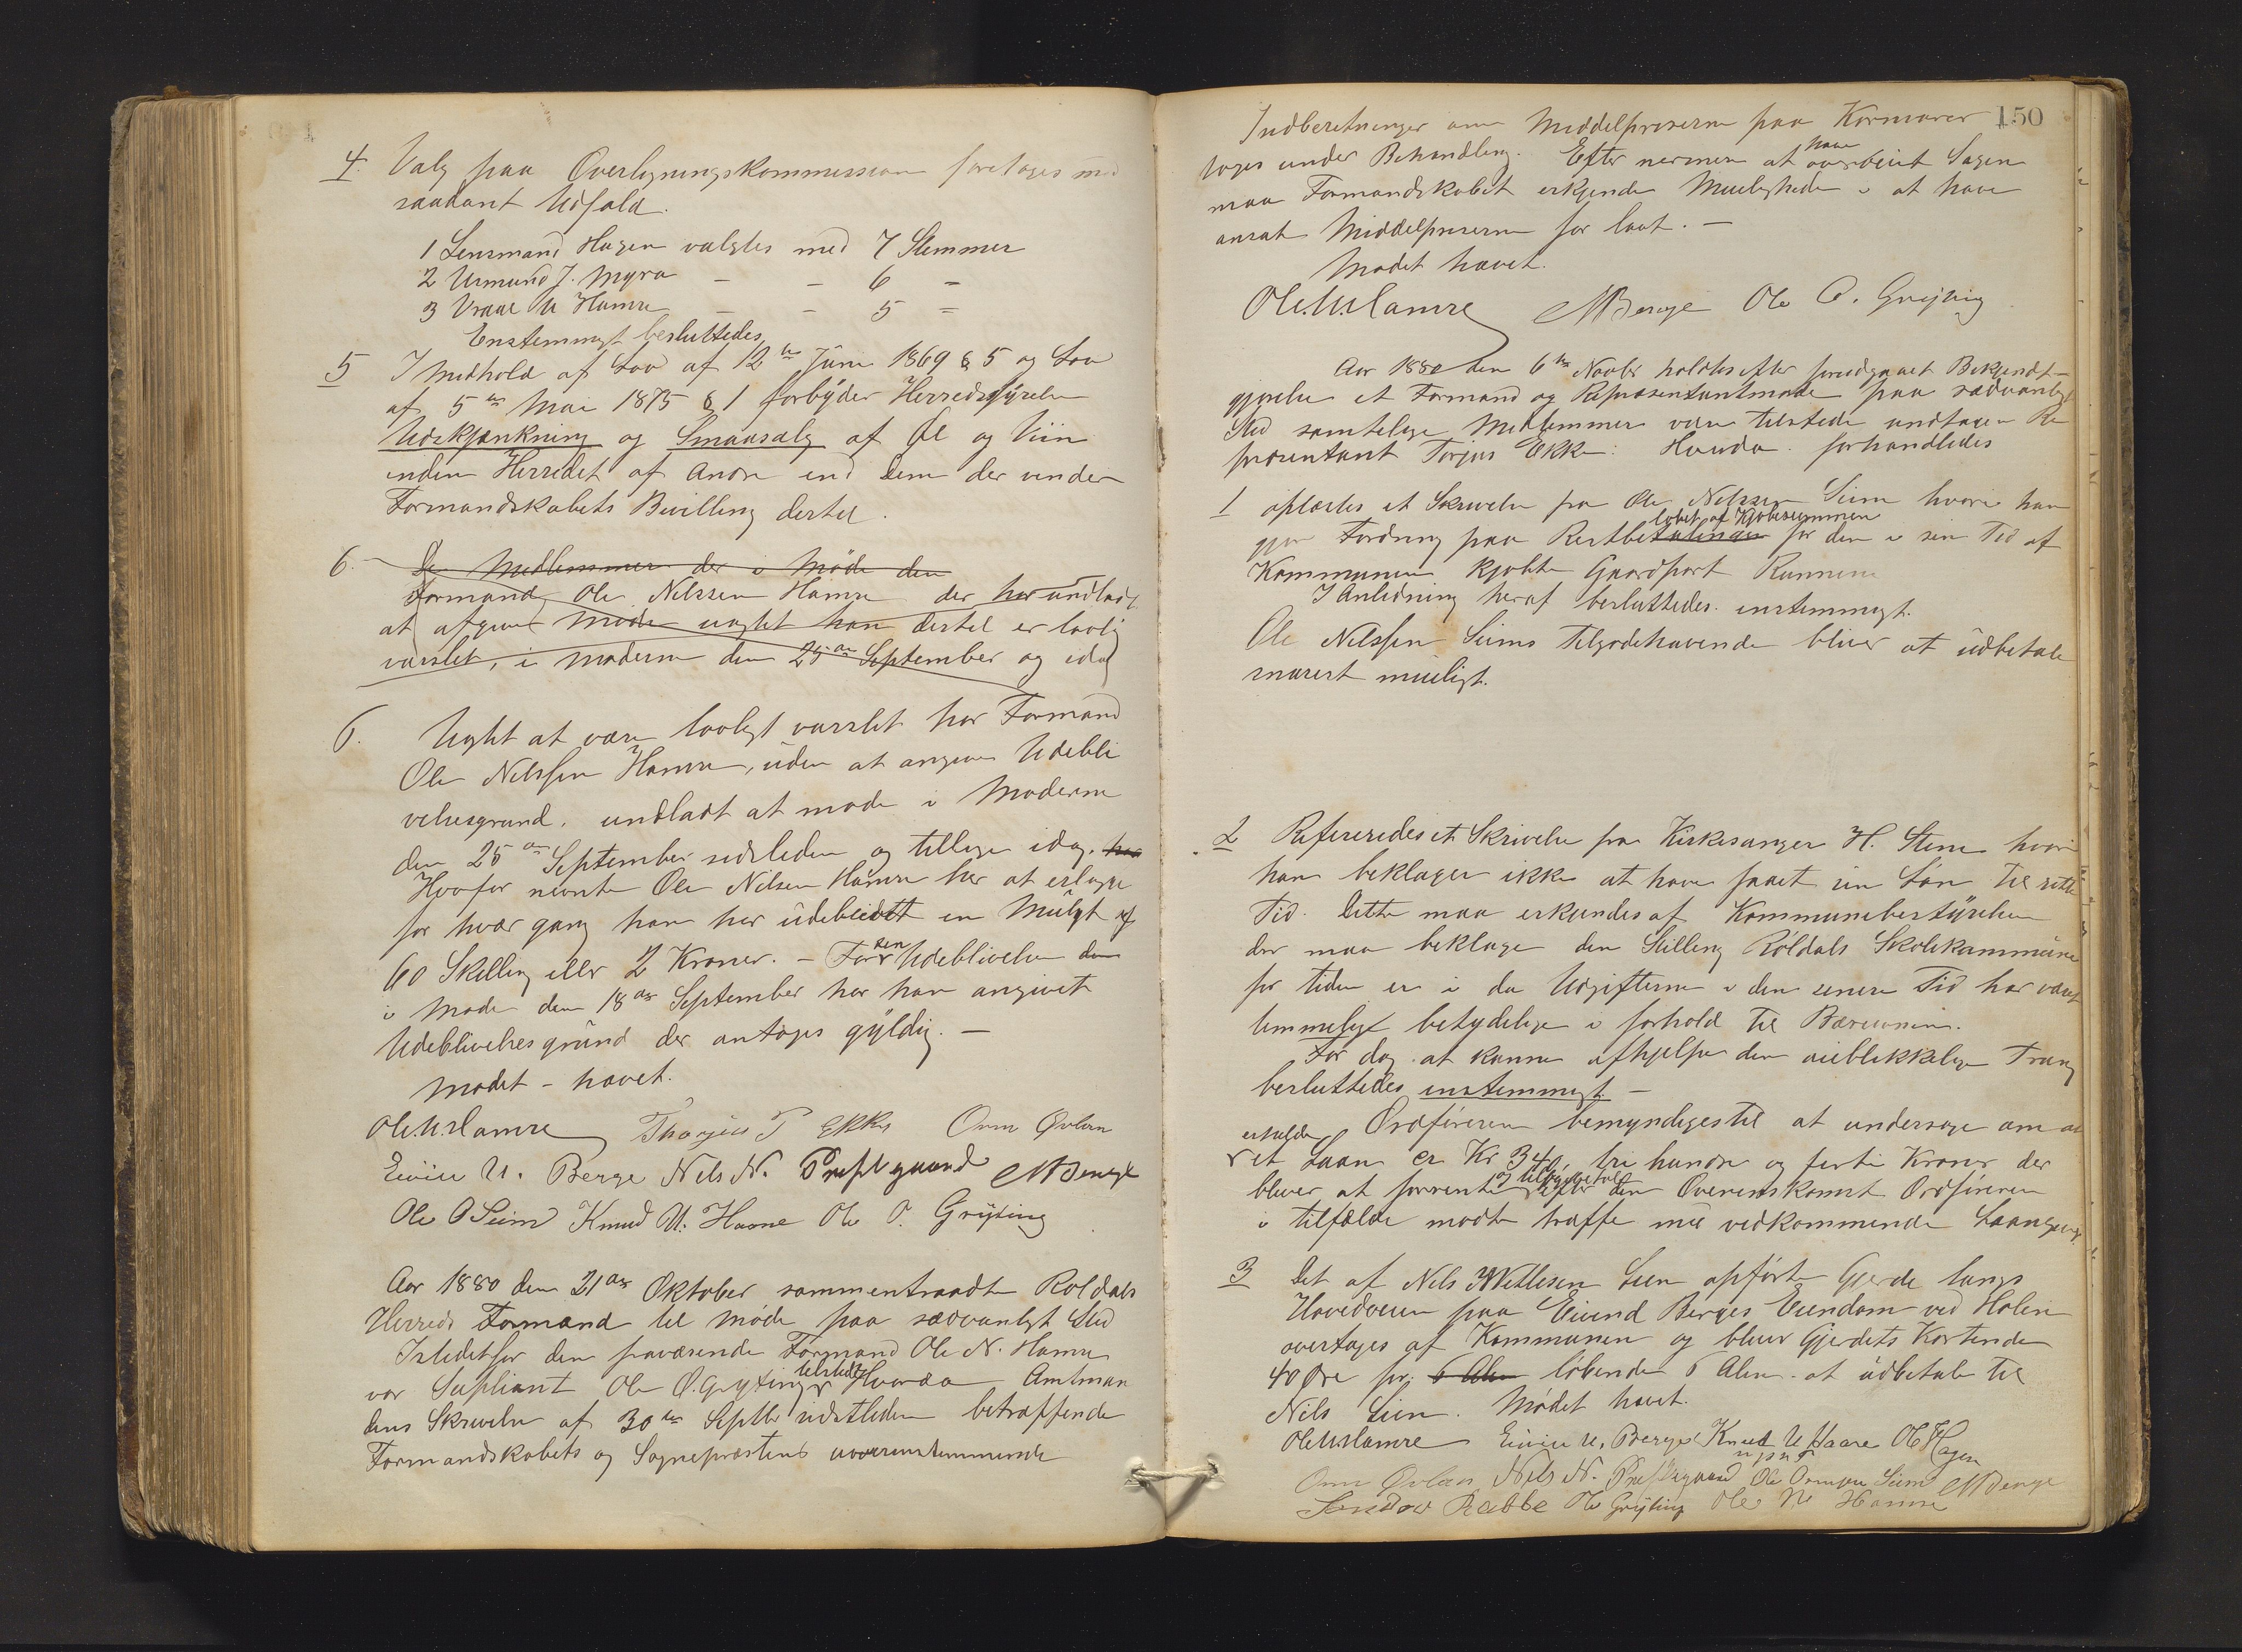 4. Valg paa Overligningskommission foretoges med
saadant Udfald.
1 Lensmand Hagen valgtes med 7 Stemmer
2 Aamund J. Myra — — 6 —
3 Vraal U Hamre — — 5 =
Enstemmigt besluttedes
5 I Medhold af Lov af 12te Juni 1869 § 5 og Lov
af 5te Mai 1875 § 1 forbyder Herredstyrelsen
Udskjænkning og Smaasalg af Øl og Viin
inden Herredet af Andre end Dem der vinder
Formandskabets Bevilling dertil.
6. De Medlemmer der i Møde den
Formand Ole Nelssen Hamre der har undladt
at afgivet Møde uagtet han dertil er lovlig
varslet, i møderne den 25de September og idag
6. Uagtet at være lovligt varslet har Formand
Ole Nelssen Hamre, uden at angive Udebli
velsesgrund, undladt at møde i Møderne
den 25de September sidsleden og tillige idag. har
Hvorfor nevnte Ole Nelsen Hamre har at erlægge
for hver gang han har udeblivet en Mulgt af
60 Skilling eller 2 Kroner. — For sin Udeblivelse den
i Møde den 18de September har han angivet
Udeblivelsesgrund der antages gyldig. —
Mødet — hævet.
Ole N. Hamre Thorjus T Ekke Orm Øvlan
Eivin U. Berge Nels N. Prestgaard NBerge
Ole O Seim Knud U. Haave Ole O. Grytting
Aar 1880 den 21de Oktober sammentraadte Roldals
Herreds Formænd til Møde paa sædvanligt Sted
Istedetfor den fraværende Formand Ole N. Hamre
var Supliant Ole O. Grytting tilstede Hvorda Amtman
dens Skrivelse af 30te Septbr sidstleden betræffende
Formandskabets og Sognepræstens uoverenstemmende
150
Indberetninger om Middelpriserne paa Kornvarer
toges under Behandling. Efter nermere at have overveiet Sagen
maa Formandskabet erkjende Mueligheden i at have
ansat Middelpriserne for lavt. —
Mødet hævet.
Ole N. Hamre NBerge Ole O. Grytting
Aar 1880 den 6te Novbr holdtes efter forudgaaet Bekjendt-
gjørelse et Formand og Repræsentantmøde paa sædvanligt
Sted samtelige Medlemmer være tilstede undtagen Re
præsentant Torjus Ekke. Hvorda forhandledes
1 oplæstes et Skrivelse fra Ole Nelssen Seim hvori han
gjør Fordring paa Restbetalingen løbet af Kjøbesummen for den i sin Tid af
Kommunen kjøbte Gaardpart Runnene
I Anledning heraf besluttedes enstemmigt.
Ole Nelssen Seims Tilgodehavende bliver at udbetale
snarest mueligt.
2 Refereredes et Skrivelse fra Kirkesanger H. Stene hvori
han beklager ikke at have faaet sin Løn til rette
Tid. Dette maa erkjendes af Kommunebestyrelsen
der maa beklage den Stilling Røldals Skolekommune
for tiden er i da Udgifterne i den senere Tid har været
temmelige betydelige i forhold til Bæreevnen.
For dog at kunne afhjelpe den øieblikkelige Trang
besluttedes enstemmigt —
Ordføreren bemyndiges til at undersøge om at
erholde et Laan er Kr 340, tre hundre og førti Kroner der
bliver at forrente og tilbagebetale efter den Overenskomst Ordføreren
i tilfælde maatte træffe med vedkommende Laangiver.
3 Det af Nils Wetlesen Lien opførte Gjerde langs
Hovedveien paa Eivind Berges Eiendom ved Holen
overtages af Kommunen og bliver Gjerdets Kostende
40 Øre pr. 6 Alen løbende 6 Alen at udbetale til
Nils Lien. Mødet hævet.
Ole N. Hamre Eivin U. Berge Knud U Haave OHHagen
Orm Øvlan Nils N. Prestegaard Ole Ormsen Seim NBerge
Sendov Rabbe Ole Grytting Ole N Hamre